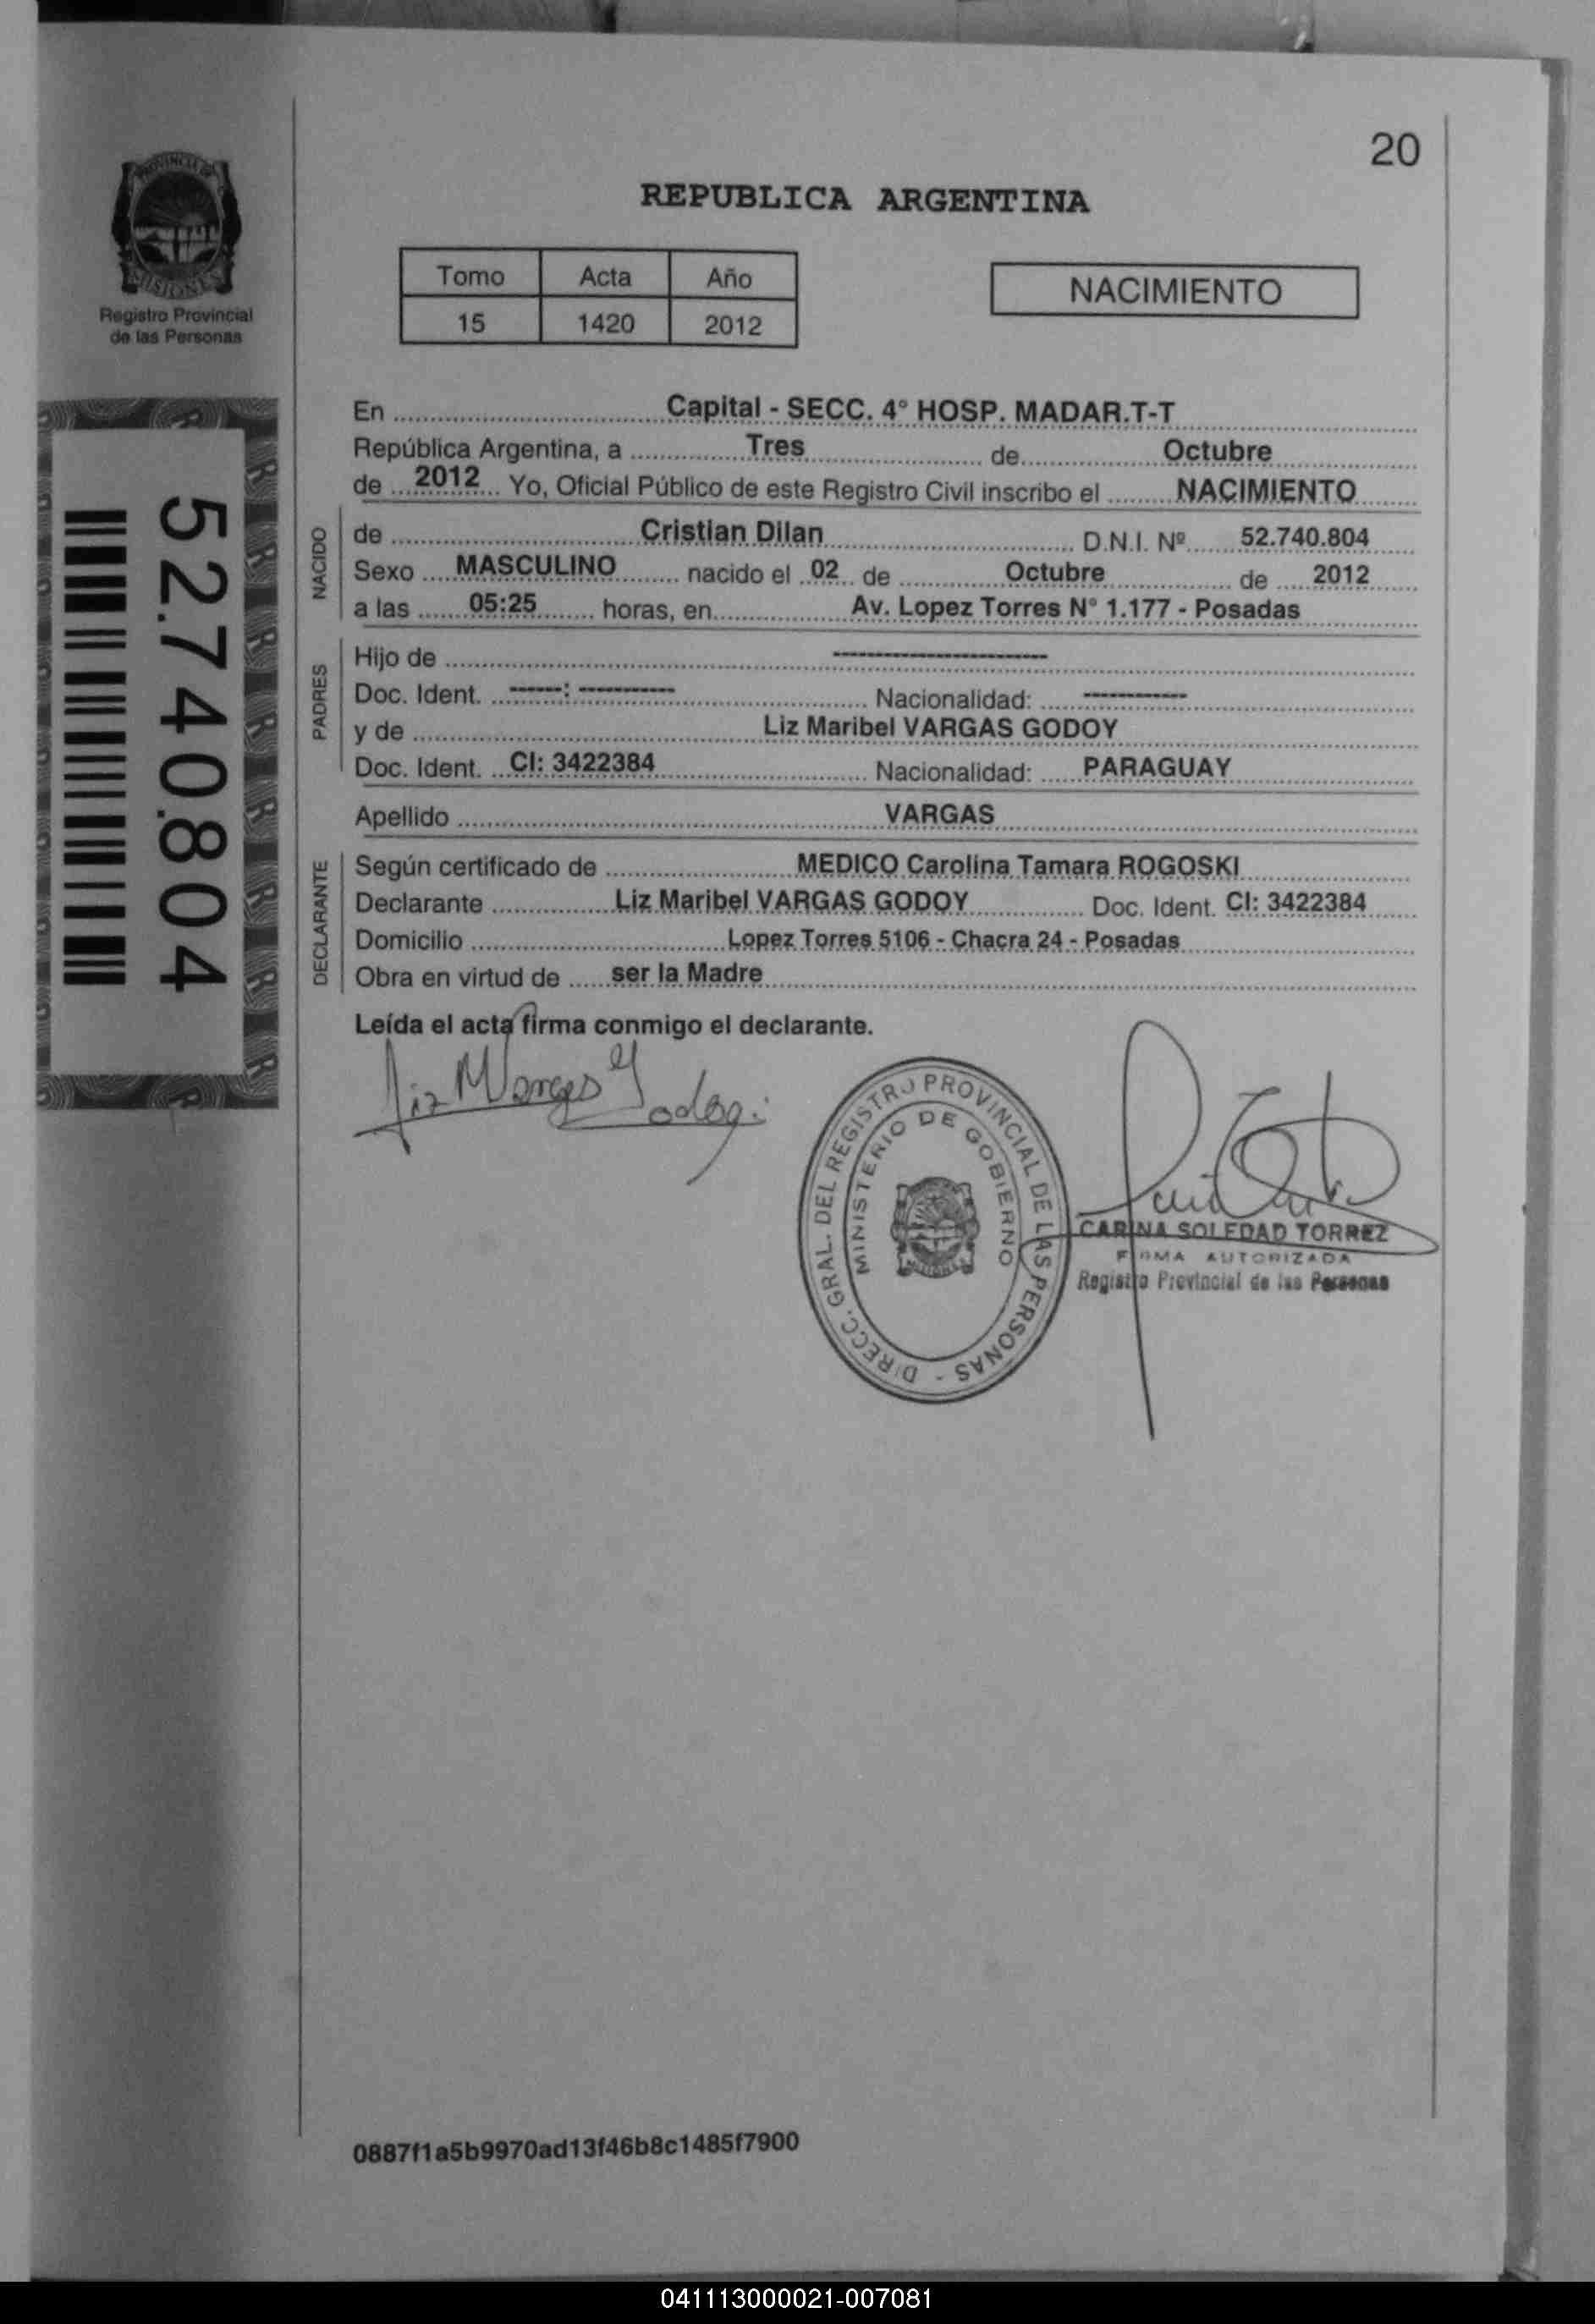 20
REPUBLICA ARGENTINA
PROVINCIA DE
MISIONES
Registro Provincial
de las Personas
Tomo Acta Año
15 1420 2012
NACIMIENTO
52.740.804
En Capital - SECC. 4° HOSP. MADAR.T-T
República Argentina, a Tres de Octubre
de 2012 Yo, Oficial Público de este Registro Civil inscribo el NACIMIENTO
NACIDO
de Cristian Dilan D.N.I. Nº 52.740.804
Sexo MASCULINO nacido el 02 de Octubre de 2012
a las 05:25 horas, en Av. Lopez Torres N° 1.177 - Posadas
PADRES
Hijo de --------------------
Doc. Ident. ------: ---------- Nacionalidad: -----------
y de Liz Maribel VARGAS GODOY
Doc. Ident. CI: 3422384 Nacionalidad: PARAGUAY
Apellido VARGAS
DECLARANTE
Según certificado de MEDICO Carolina Tamara ROGOSKI
Declarante Liz Maribel VARGAS GODOY Doc. Ident. CI: 3422384
Domicilio Lopez Torres 5106 - Chacra 24 - Posadas
Obra en virtud de ser la Madre
Leída el acta firma conmigo el declarante.
Liz M Vargas Godoy
DIRECC. GRAL. DEL REGISTRO PROVINCIAL DE LAS PERSONAS -
MINISTERIO DE GOBIERNO
CARINA SOLEDAD TORREZ
FIRMA AUTORIZADA
Registro Provincial de las Personas
0887f1a5b9970ad13f46b8c1485f7900
041113000021-007081